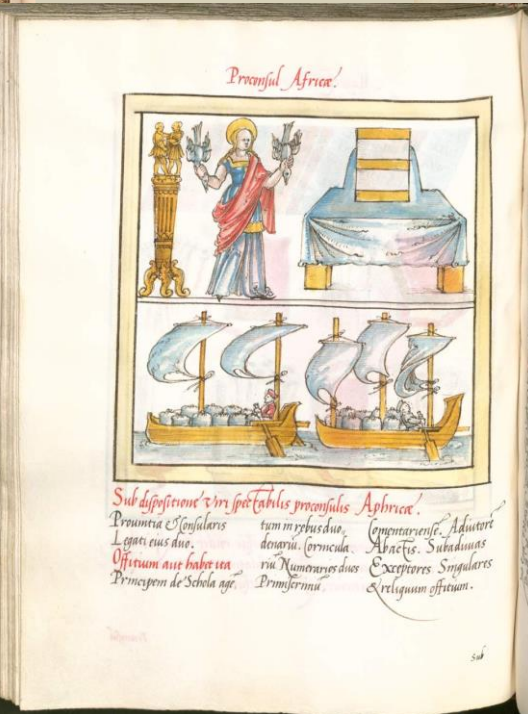 Proconsul Africæ.
Sub dispositione Viri spectabilis proconsulis Aphricæ.
Prouintia & Consularis
Legati eius duo.
Offitium aut habet ita
Principem de Schola age
tum in rebus duo.
denariu. Cornicula
riu Numerarios duos
Primscriniu
Comentariense. Adiutore
Abactis. Subadiuuas
Exceptores Singulares
& reliquum offitium.
Sub